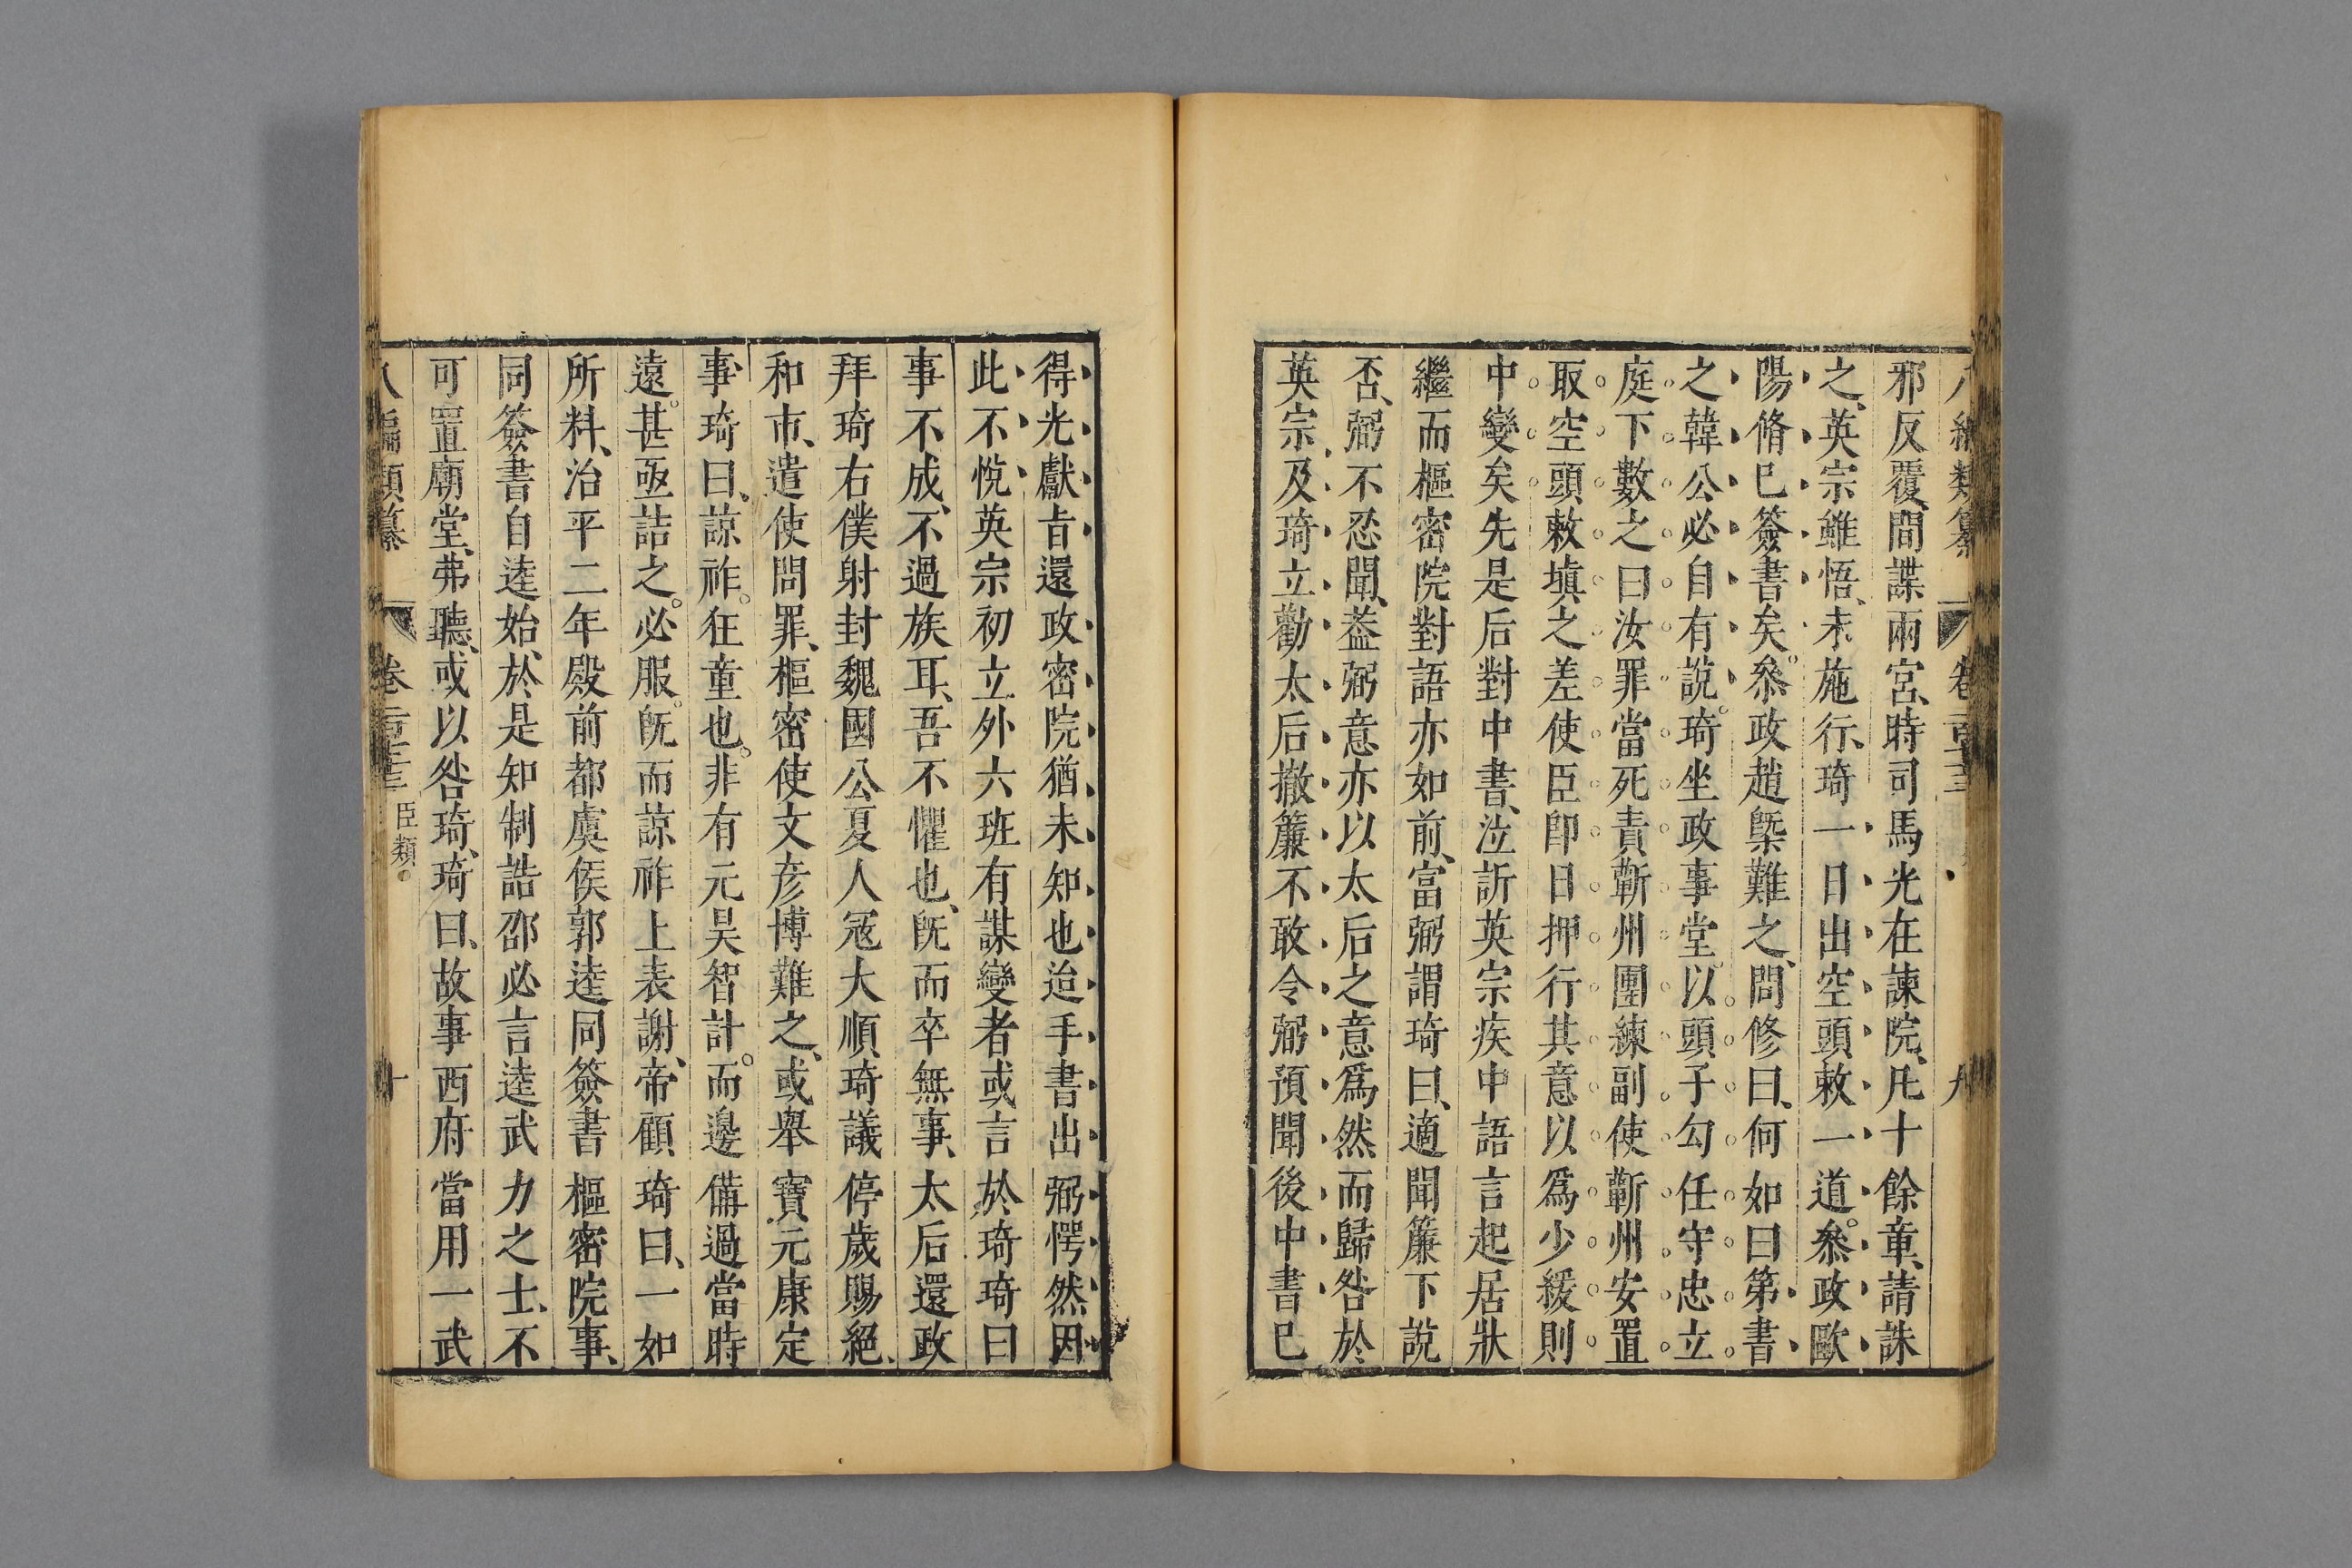 邪反覆、間諜兩宮、時司馬光在諫院、凡十餘章、請誅
之、英宗雖悟、未施行、琦一日出空頭敕一道。叅政歐
陽脩已簽書矣。叅政趙槩難之、問修曰、何如曰第書
之韓公必自有說。琦坐政事堂。以頭子勾任守忠立
庭下數之曰汝罪當死責蘄州團練副使蘄州安置
取空頭敕塡之差使臣卽日押行其意以爲少緩則
中變矣先是后對中書、泣訴英宗疾中語言起居狀
繼而樞密院對語亦如前、富弼謂琦曰、適聞簾下說
否、弼不忍聞、葢弼意亦以太后之意爲然而歸咎於
英宗及琦立勸太后撤簾不敢令弼預聞後中書已
得光獻旨還政密院猶未知也迨手書出弼愕然因
此不悅英宗初立外六班有謀變者或言於琦琦曰
事不成、不過族耳、吾不懼也、旣而卒無事、太后還政
拜琦右僕射封魏國公夏人冦大順琦議停歲賜絕
和市、遣使問罪、樞密使文彥博難之、或舉寶元康定
事琦曰、諒祚狂童也。非有元昊智計。而邊備過當時
遠。甚亟詰之。必服。旣而諒祚上表謝、帝顧琦曰、一如
所料、治平二年殿前都虞侯郭逵同簽書樞密院事、
同簽書自逵始、於是知制誥邵必言逵武力之士、不
可置廟堂弗聽、或以咎琦、琦曰、故事西府當用一武
八編類纂 卷 臣類 十